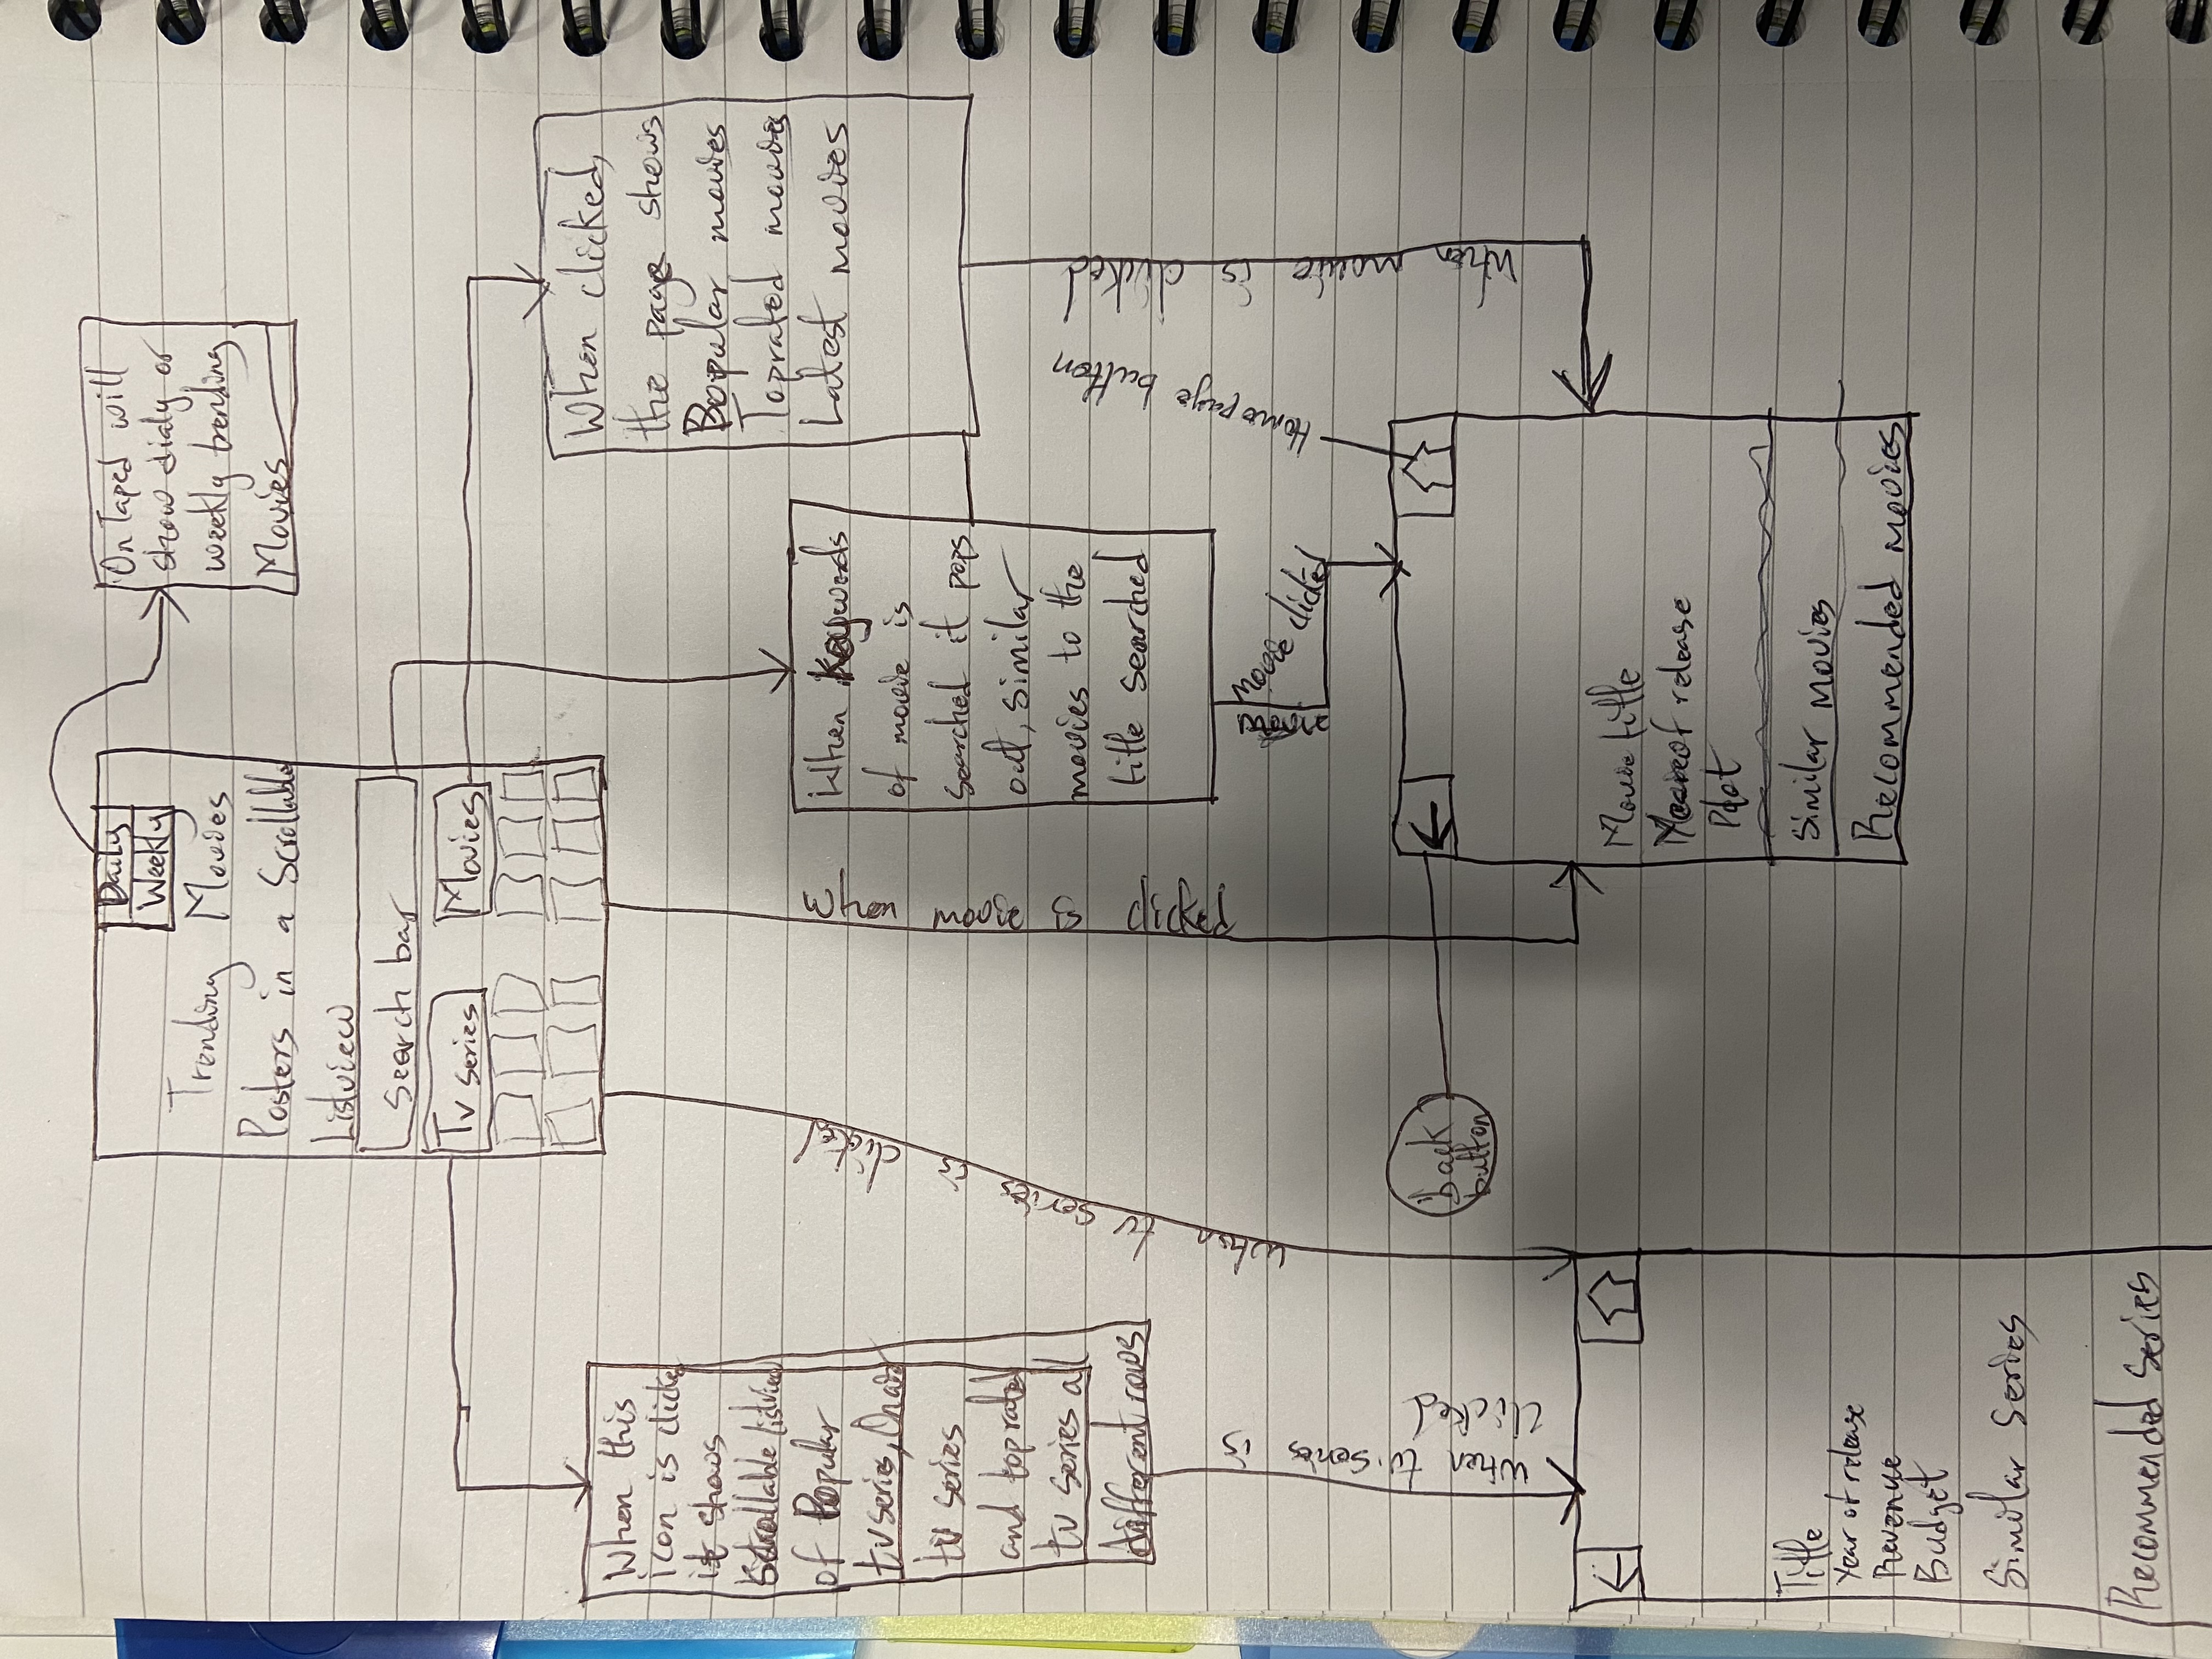 Daily
Weekly
Trending Movies
Posters in a Scrollable
Listview
Search bar
Tv series
Movies
On Taped will
show dialy or
weekly trending
Movies
When this
icon is clicke
it shows
Scrollable listview
of Popular
tv series, On air
tv series
and toprated
tv series all
different rows
When clicked,
the page shows
Popular movies
Toprated movies
Latest movies
When Keywords
of movie is
searched it pops
out, similar
movies to the
title searched
when tv series is clicked
when movie is clicked
when tv series is
clicked
movie
movie clicked
Homepage button
when movie is clicked
back
button
Movie title
Year of release
Plot
Similar movies
Recommended movies
Title
Year of release
Revenue
Budget
Similar Series
Recommended Series